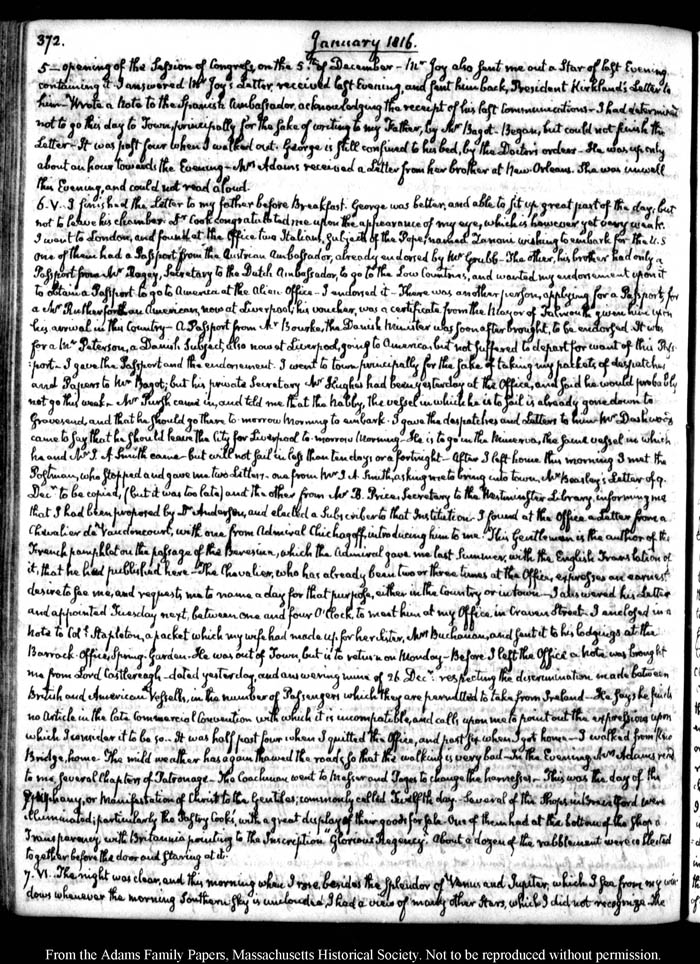 372.
January 1816.
5— opening of the Session of Congress, on the 5th of December — Mr Joy also sent me out a Star of last Evening
containing it. I answered Mr Joy's Letter, received last Evening, and sent him back, President Kirkland's Letter to
him — Wrote a Note to the Spanish Ambassador, acknowledging the receipt of his last Communications — I had determined
not to go this day to Town, principally for the sake of writing to my Father, by Mr Bagot. Began, but could not finish the
Letter — It was past four when I walked out. George is still confined to his bed, by the Doctor's orders — He was up only
about an hour towards the Evening — Mrs Adams received a Letter from her brother at New Orleans. She was unwell
this Evening, and could not read aloud.
6. V. I finished the Letter to my father before Breakfast. George was better, and able to sit up great part of the day; but
not to leave his chamber. Dr Cook congratulated me upon the appearance of my eye, which is however yet very weak.
I went to London, and found at the Office two Italians, Subjects of the Pope, named Zanoni wishing to embark for the U.S
One of them had a Passport from the Austrian Ambassador, already endorsed by Mr Grubb — The other, his brother had only a
Passport from Mr Nagey, Secretary to the Dutch Ambassador, to go to the Low Countries, and wanted my endorsement upon it
to obtain a Passport to go to America at the Alien Office — I endorsed it — There was another person, applying for a Passport, for
a Mr Rutherford an American, now at Liverpool; his voucher, was a certificate from the Mayor of Falmouth given him upon
his arrival in this Country — A Passport from Mr Bourke, the Danish Minister was soon after brought, to be endorsed. It was
for a Mr Peterson, a Danish Subject, also now at Liverpool, going to America, but not suffered to depart for want of this Pass-
:port — I gave the Passport and the endorsement. I went to town principally for the sake of taking my packets of despatches
and Papers to Mr Bagot; but his private Secretary Mr Hughes had been yesterday at the Office, and said he would probably
not go this week — Mr Pursh came in, and told me that the Nabby, the vessel in which he is to sail is already gone down to
Gravesend, and that he should go there to-morrow Morning to embark. I gave the despatches and Letters to him. Mr Dashwood
came to say that he should leave the City for Liverpool to-morrow Morning — He is to go in the Minerva, the same vessel in which
he and Mr J. A Smith came — but will not sail in less than ten days or a fortnight — After I left home this morning I met the
Postman, who stopped and gave me two Letters — one from Mr J. A Smith, asking me to bring into town, Mr Beasley's Letter of 9.
Decr to be copied, (but it was too late) and the other from Mr B. Price, Secretary to the Westminster Library, informing me
that I had been proposed by Dr Anderson, and elected a Subscriber to that Institution. I found at the Office a Letter from a
Chevalier de Vaudoncourt, with one from Admiral Chichagoff, introducing him to me. This Gentleman is the author of the
French pamphlet on the passage of the Beresina, which the Admiral gave me last Summer, with the English Translation of
it, that he had published here — The Chevalier, who has already been two or three times at the Office, expresses an earnest
desire to see me, and requests me to name a day for that purpose, either in the Country or in town — I answered his Letter
and appointed Tuesday next, between one and four O'Clock, to meet him at my Office in Craven Street. I enclosed in a
Note to Coll Stapleton, a packet which my wife had made up for her Sister, Mrs Buchanan, and sent it to his lodgings at the
Barrack-Office, Spring-Garden. He was out of Town, but is to return on Monday — Before I left the Office a Note was brought
me from Lord Castlereagh — dated yesterday, and answering mine of 26 Decr. respecting the discrimination made between
British and American Vessells, in the number of Passengers which they are permitted to take from Ireland — He says he finds
no Article in the late Commercial Convention with which it is incompatible, and calls upon me to point out the expressions upon
which I consider it to be so. It was half past four when I quitted the Office, and past six when I got home — I walked from Kew
Bridge, home. The mild weather has again thawed the roads, so that the walking is very bad — In the Evening, Mrs Adams read
to me, several Chapters of Patronage. The Coachman went to Messer and Pages to change the harnesses — This was the day of the
Epiphany, or Manifestation of Christ to the Gentiles; commonly called Twelfth day — Several of the Shops in Brentford were
illuminated; particularly the Pastry Cooks, with a great display of their goods for sale. One of them had at the bottom of the Shop a
Transparency, with Britannia pointing to the Inscription "Glorious Regency". About a dozen of the rabblement were collected
together before the door and staring at it.
7. VI. The night was clear, and this morning when I rose, besides the Splendor of Venus and Jupiter, which I see from my win-
dows whenever the morning Southern Sky is unclouded, I had a view of many other Stars, which I did not recognize. The
From the Adams Family Papers, Massachusetts Historical Society. Not to be reproduced without permission.